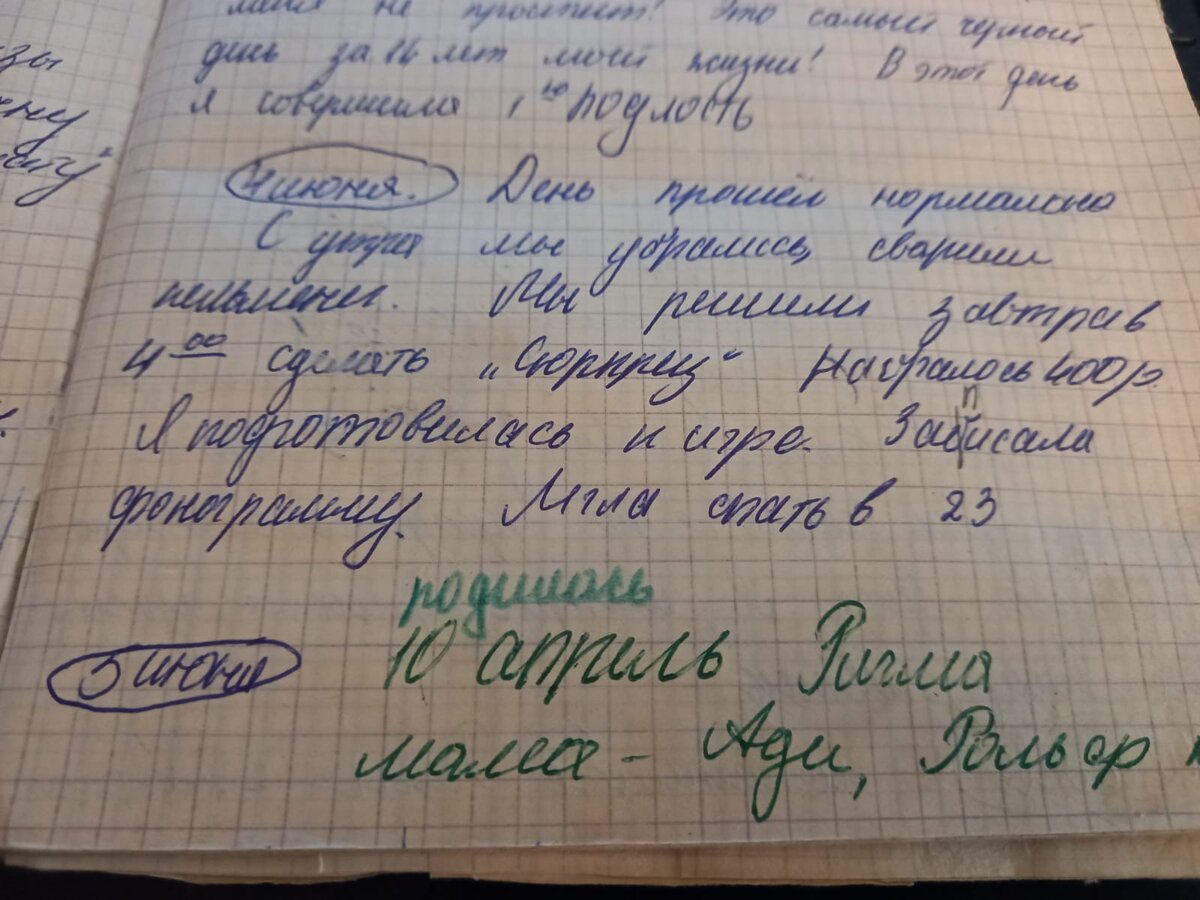 меня не простит! Это самый черный
зы
день за 14 лет моей жизни! В этот день
ену
я совершила 1ую подлость
4 июня. День прошёл нормально
С утра мы убрались, сварили
пельмени. Мы решили завтра в
4 00 сделать „Сюрприз" Набралось 400 р.
Я подготовилась к игре. Записала
фонограмму. Легла спать в 23
родилась
5 июня 10 апрель Ригма
мама - Ади, Рольф